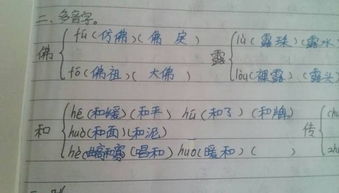 二、多音字。
佛 fú(仿佛)(佛 戾) 露 lù(露珠)(露水
fó(佛祖)(大佛) lòu(裸露)(露头
和 hé(和缓)(和平) hú(和了)(和牌
huó(和面)(和泥) 传
hè( )(唱和) huo(暖和)( )